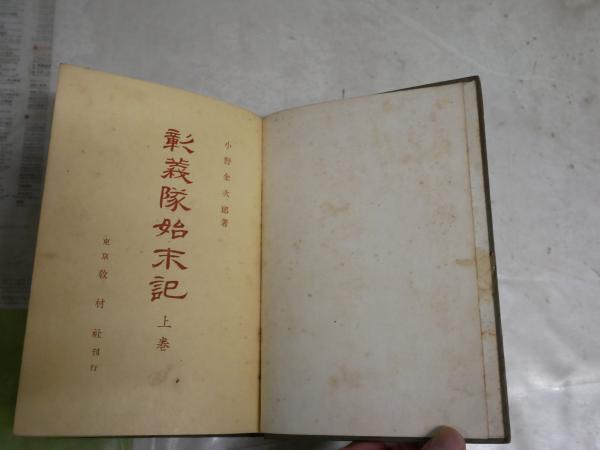 小野金次郎著
彰義隊始末記 上巻
東京 教材社刊行